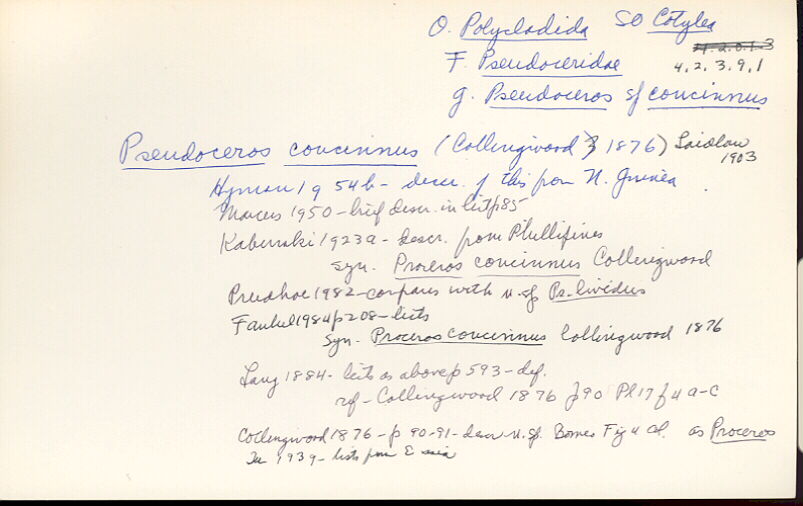 O. Polycladida SO Cotylea
4.2.0.1.3
F. Pseudoceridae 4.2.3.9.1
g. Pseudoceros sp concinnus
Pseudoceros concinnus (Collingwood 1876) Laidlaw 1903
Hyman 1954b - descr. of this from N. Guinea
Marcus 1950 - brief descr. in list p85
Kaburaki 1923a - descr. from Phillipines
syn. Proceros concinnus Collingwood
Prudhoe 1982 - compares with n.sp Ps. lividus
Faubel 1984 p208 - lists
syn. Proceros concinnus Collingwood 1876
Lang 1884 - lists as above p 593 - def.
ref - Collingwood 1876 p90 Pl 17 f 4 a-c
Collingwood 1876 - p 90-91 - descr n.sp. Borneo Fig 4 as Proceros
1939 - lists from E